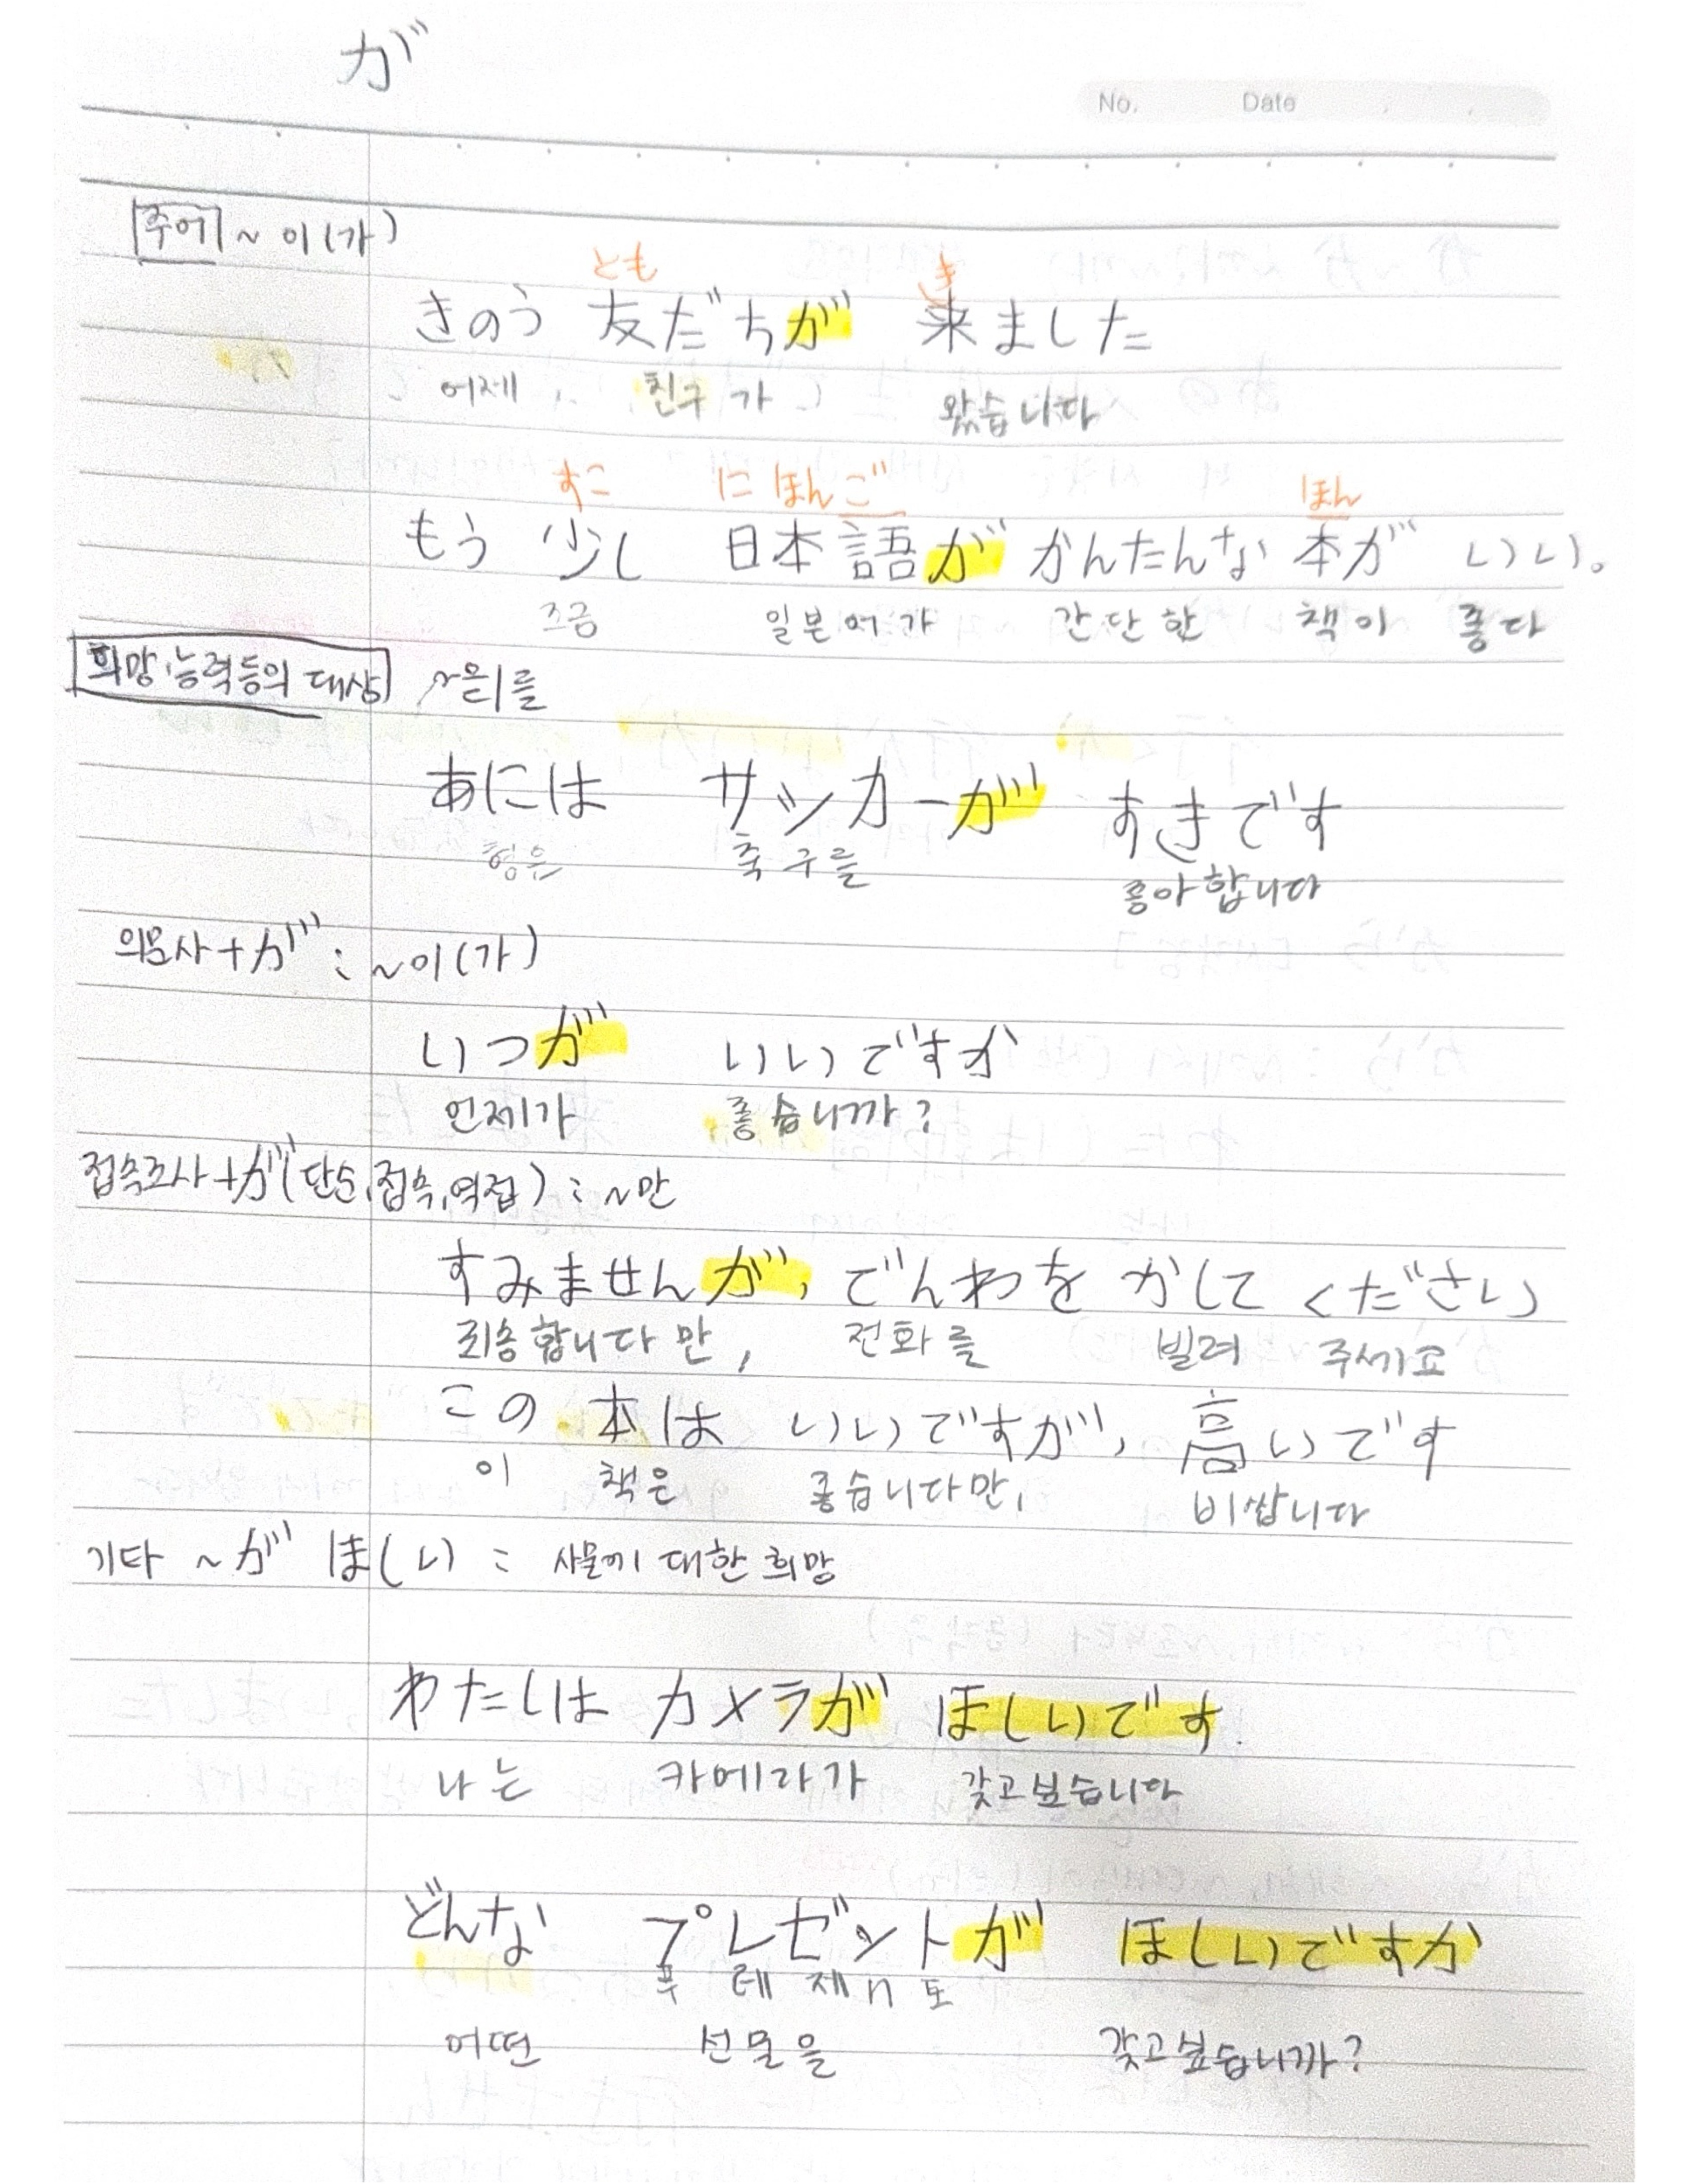 が
No. Date
주어 ~ 이(가)
とも き
きのう 友だちが 来ました
어제 친구가 왔습니다
すこ にほんご ほん
もう 少し 日本語が かんたんな 本が いい。
조금 일본어가 간단한 책이 좋다
희망, 능력등의 대상 ~을/를
あには サッカーが すきです
형은 축구를 좋아합니다
의문사+が : ~이(가)
いつが いいですか
언제가 좋습니까?
접속조사+が(단순,접속,역접) : ~만
すみませんが, でんわを かして ください
죄송합니다만, 전화를 빌려 주세요
この 本は いいですが, 高いです
이 책은 좋습니다만, 비쌉니다
기타 ~が ほしい : 사물에 대한 희망
わたしは カメラが ほしいです.
나는 카메라가 갖고싶습니다
どんな プレゼントが ほしいですか
푸 레 제 ㄴ 토
어떤 선물을 갖고싶습니까?